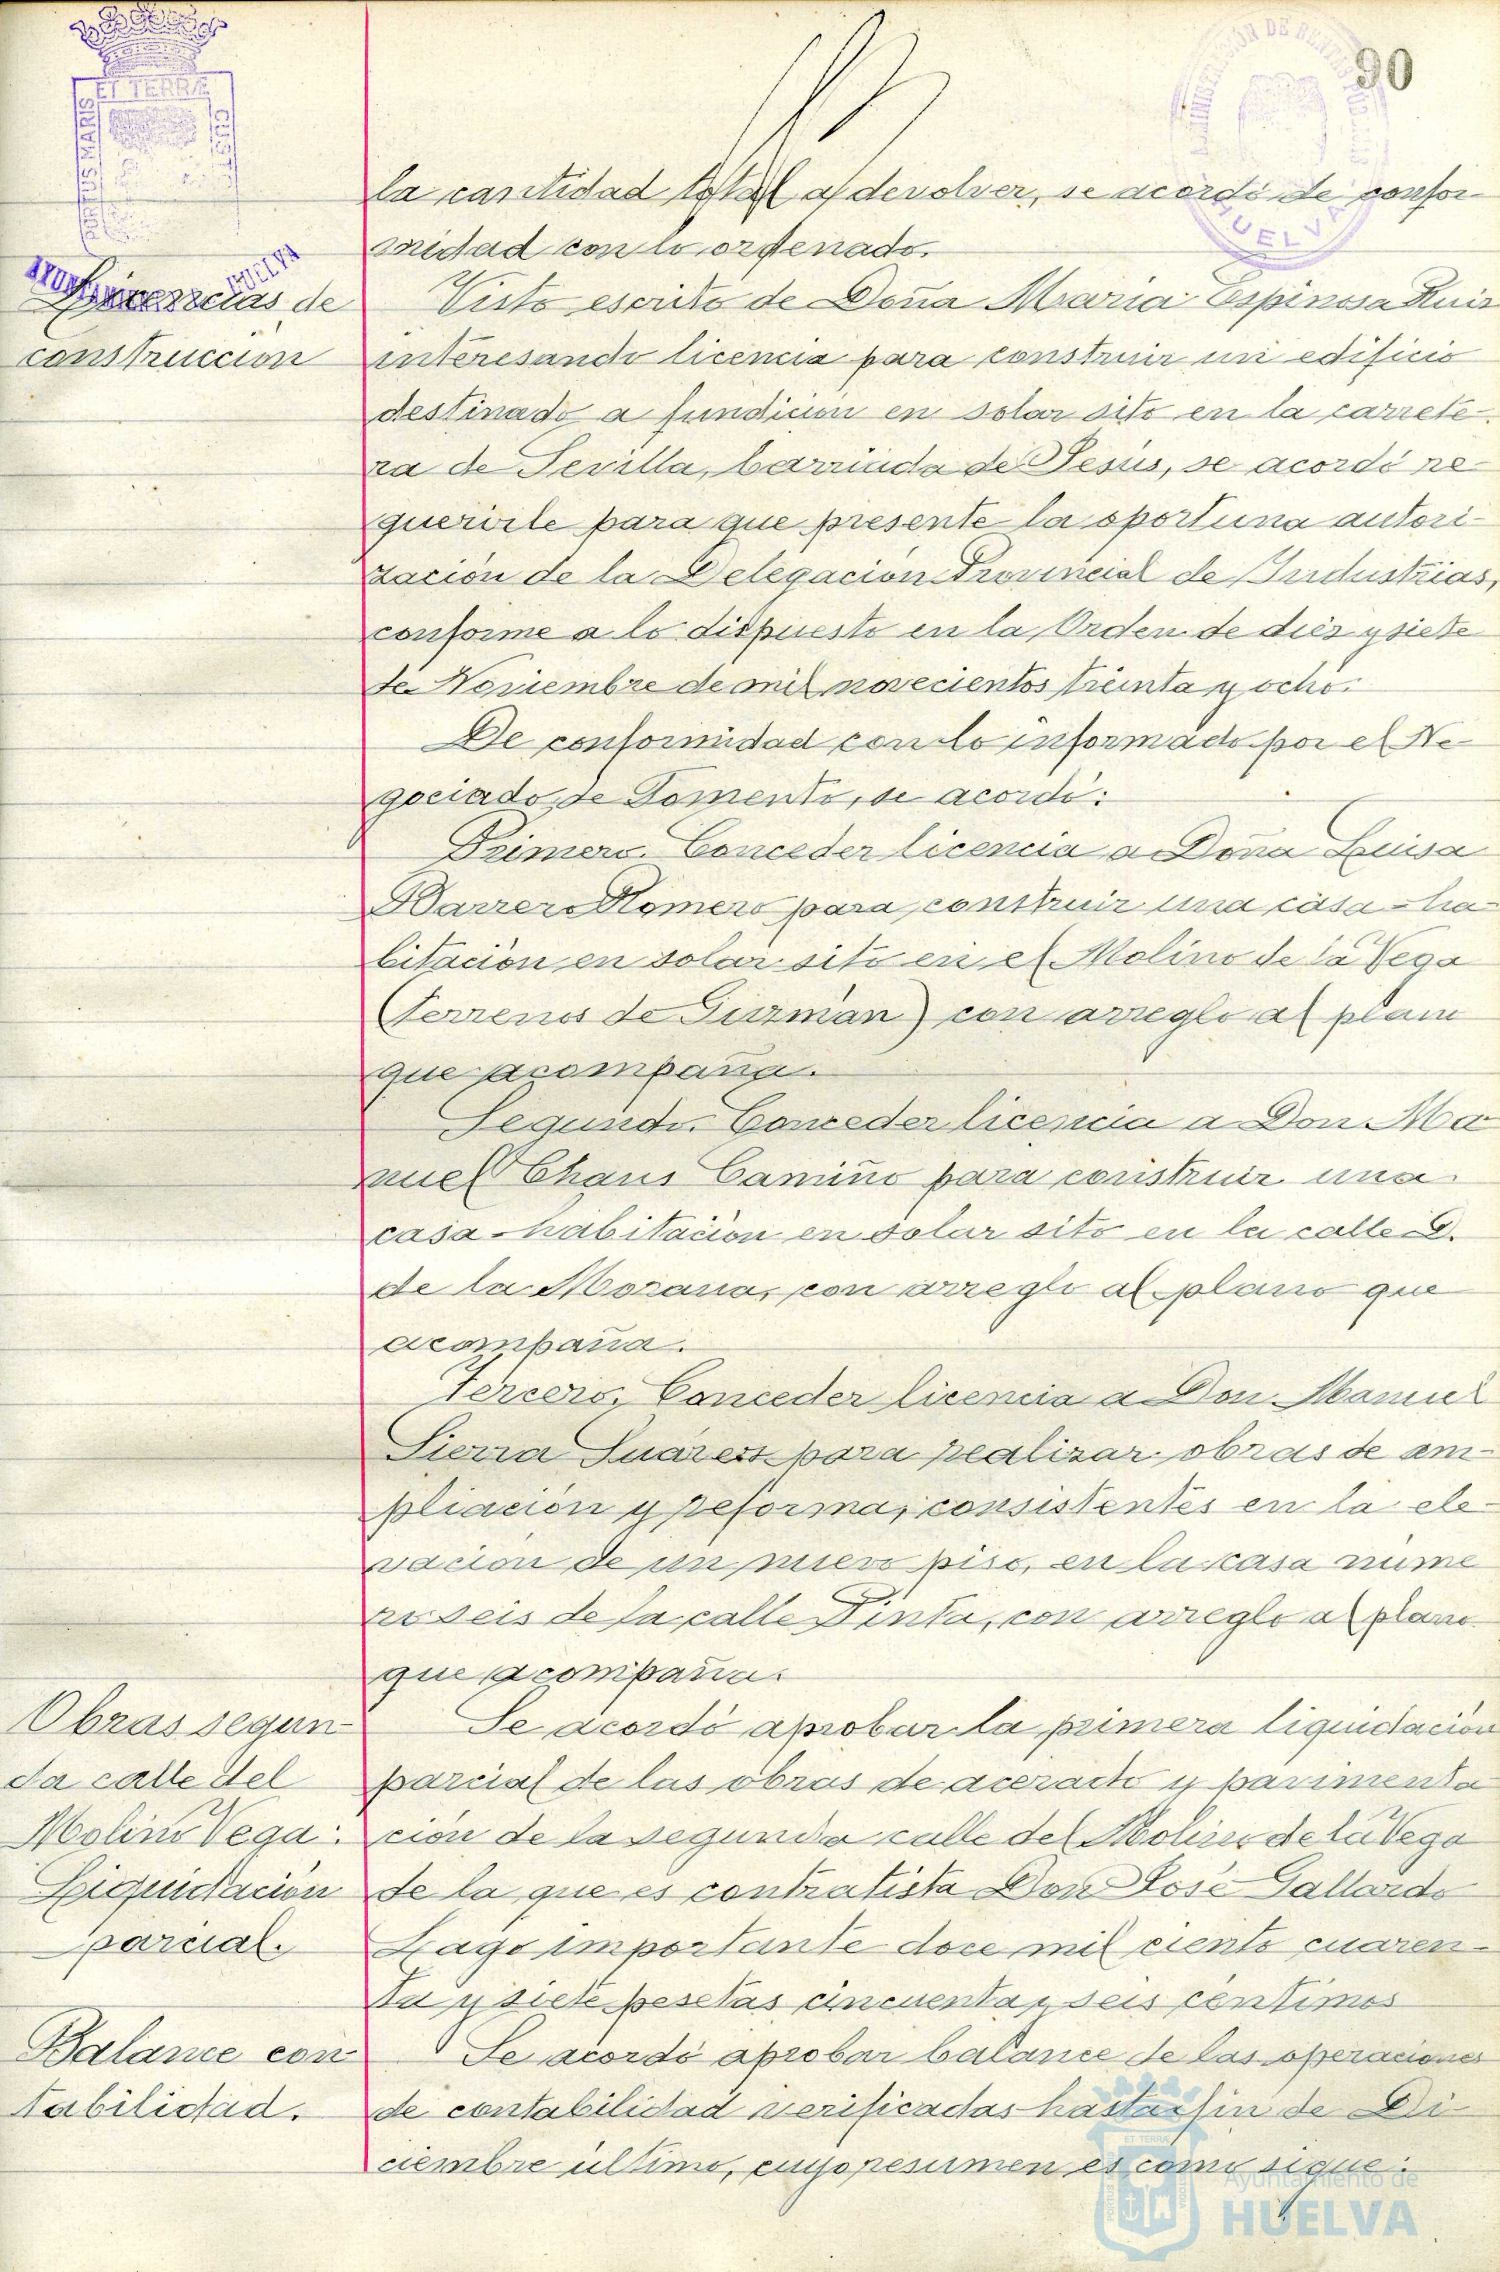 90
ET TERRÆ
HUELVA
la cantidad total a devolver, se acordó de confor-
midad con lo ordenado.
AYUNTAMIENTO HUELVA
Licencias de
construccion
Visto escrito de Doña Maria Espinosa Ruiz
interesando licencia para construir un edificio
destinado a fundición en solar sito en la carrete-
ra de Sevilla, barriada de Jesús, se acordó re-
querirle para que presente la oportuna autori-
zación de la Delegación Provincial de Industrias,
conforme a lo dispuesto en la Orden de diez y siete
de Noviembre de mil novecientos treinta y ocho.
De conformidad con lo informado por el Ne-
gociado de Fomento, se acordó:
Primero. Conceder licencia a Doña Luisa
Barrero Romero para construir una casa-ha-
bitación en solar sito en el Molino de la Vega
(Terrenos de Guzmán) con arreglo al plano
que acompaña.
Segundo. Conceder licencia a Don Ma-
nuel Chans Camiño para construir una
casa-habitación en solar sito en la calle G.
de la Morana, con arreglo al plano que
acompaña.
Tercero. Conceder licencia a Don Manuel
Sierra Suárez para realizar obras de am-
pliación y reforma, consistentes en la ele-
vación de un nuevo piso, en la casa núme
ro seis de la calle Pinta, con arreglo al plano
que acompaña.
Obras segun-
da calle del
Molino Vega:
Liquidación
parcial.
Se acordó aprobar la primera liquidación
parcial de las obras de acerado y pavimenta
ción de la segunda calle del Molino de la Vega
de la que es contratista Don José Gallardo
Lago importante doce mil ciento cuaren-
ta y siete pesetas cincuenta y seis céntimos
Balance con
tabilidad.
Se acordó aprobar balance de las operaciones
de contabilidad verificadas hasta fin de Di-
ciembre último, cuyo resumen es como sigue:
Ayuntamiento de
HUELVA